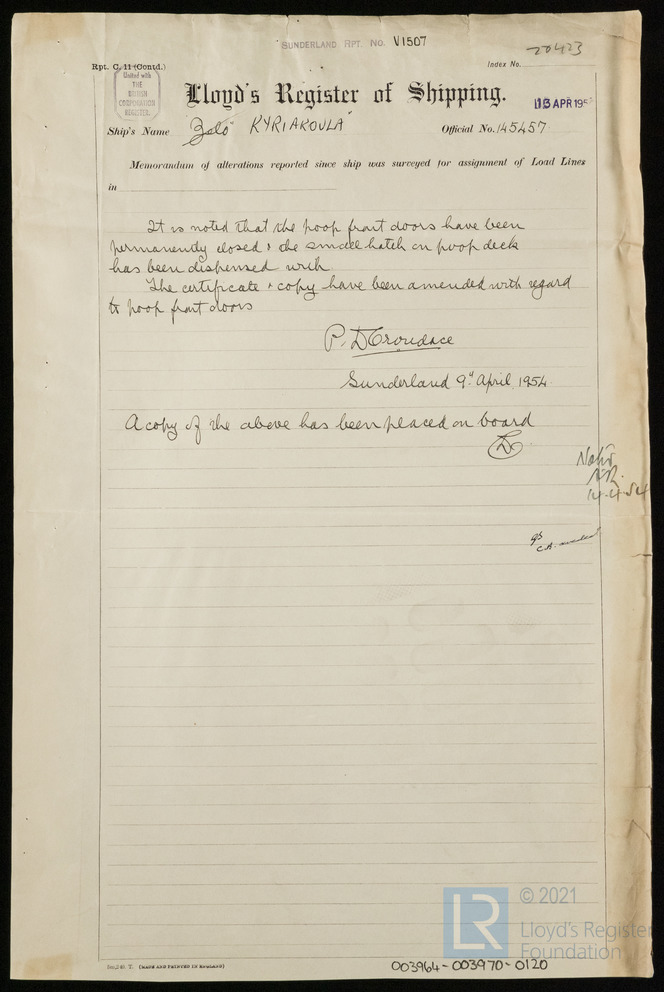 SUNDERLAND RPT. NO. V1507
Rpt. C. 11 (Contd.)
Index No. 20423
United with
THE
BRITISH
CORPORATION
REGISTER.
Lloyd's Register of Shipping.
13 APR 195
Ship's Name "Zelo" KYRIAKOULA"
Official No. 145457
Memorandum of alterations reported since ship was surveyed for assignment of Load Lines
in
It is noted that the poop front doors have been
permanently closed & the small hatch on poop deck
has been dispensed with
The certificate & copy have been amended with regard
to poop front doors
P. D Croudace
Sunderland 9th April, 1954.
A copy of the above has been placed on board
Noted
14.4.54
(MADE AND PRINTED IN ENGLAND)
003964-003970-0120
LR
© 2021
Lloyd's Register
Foundation